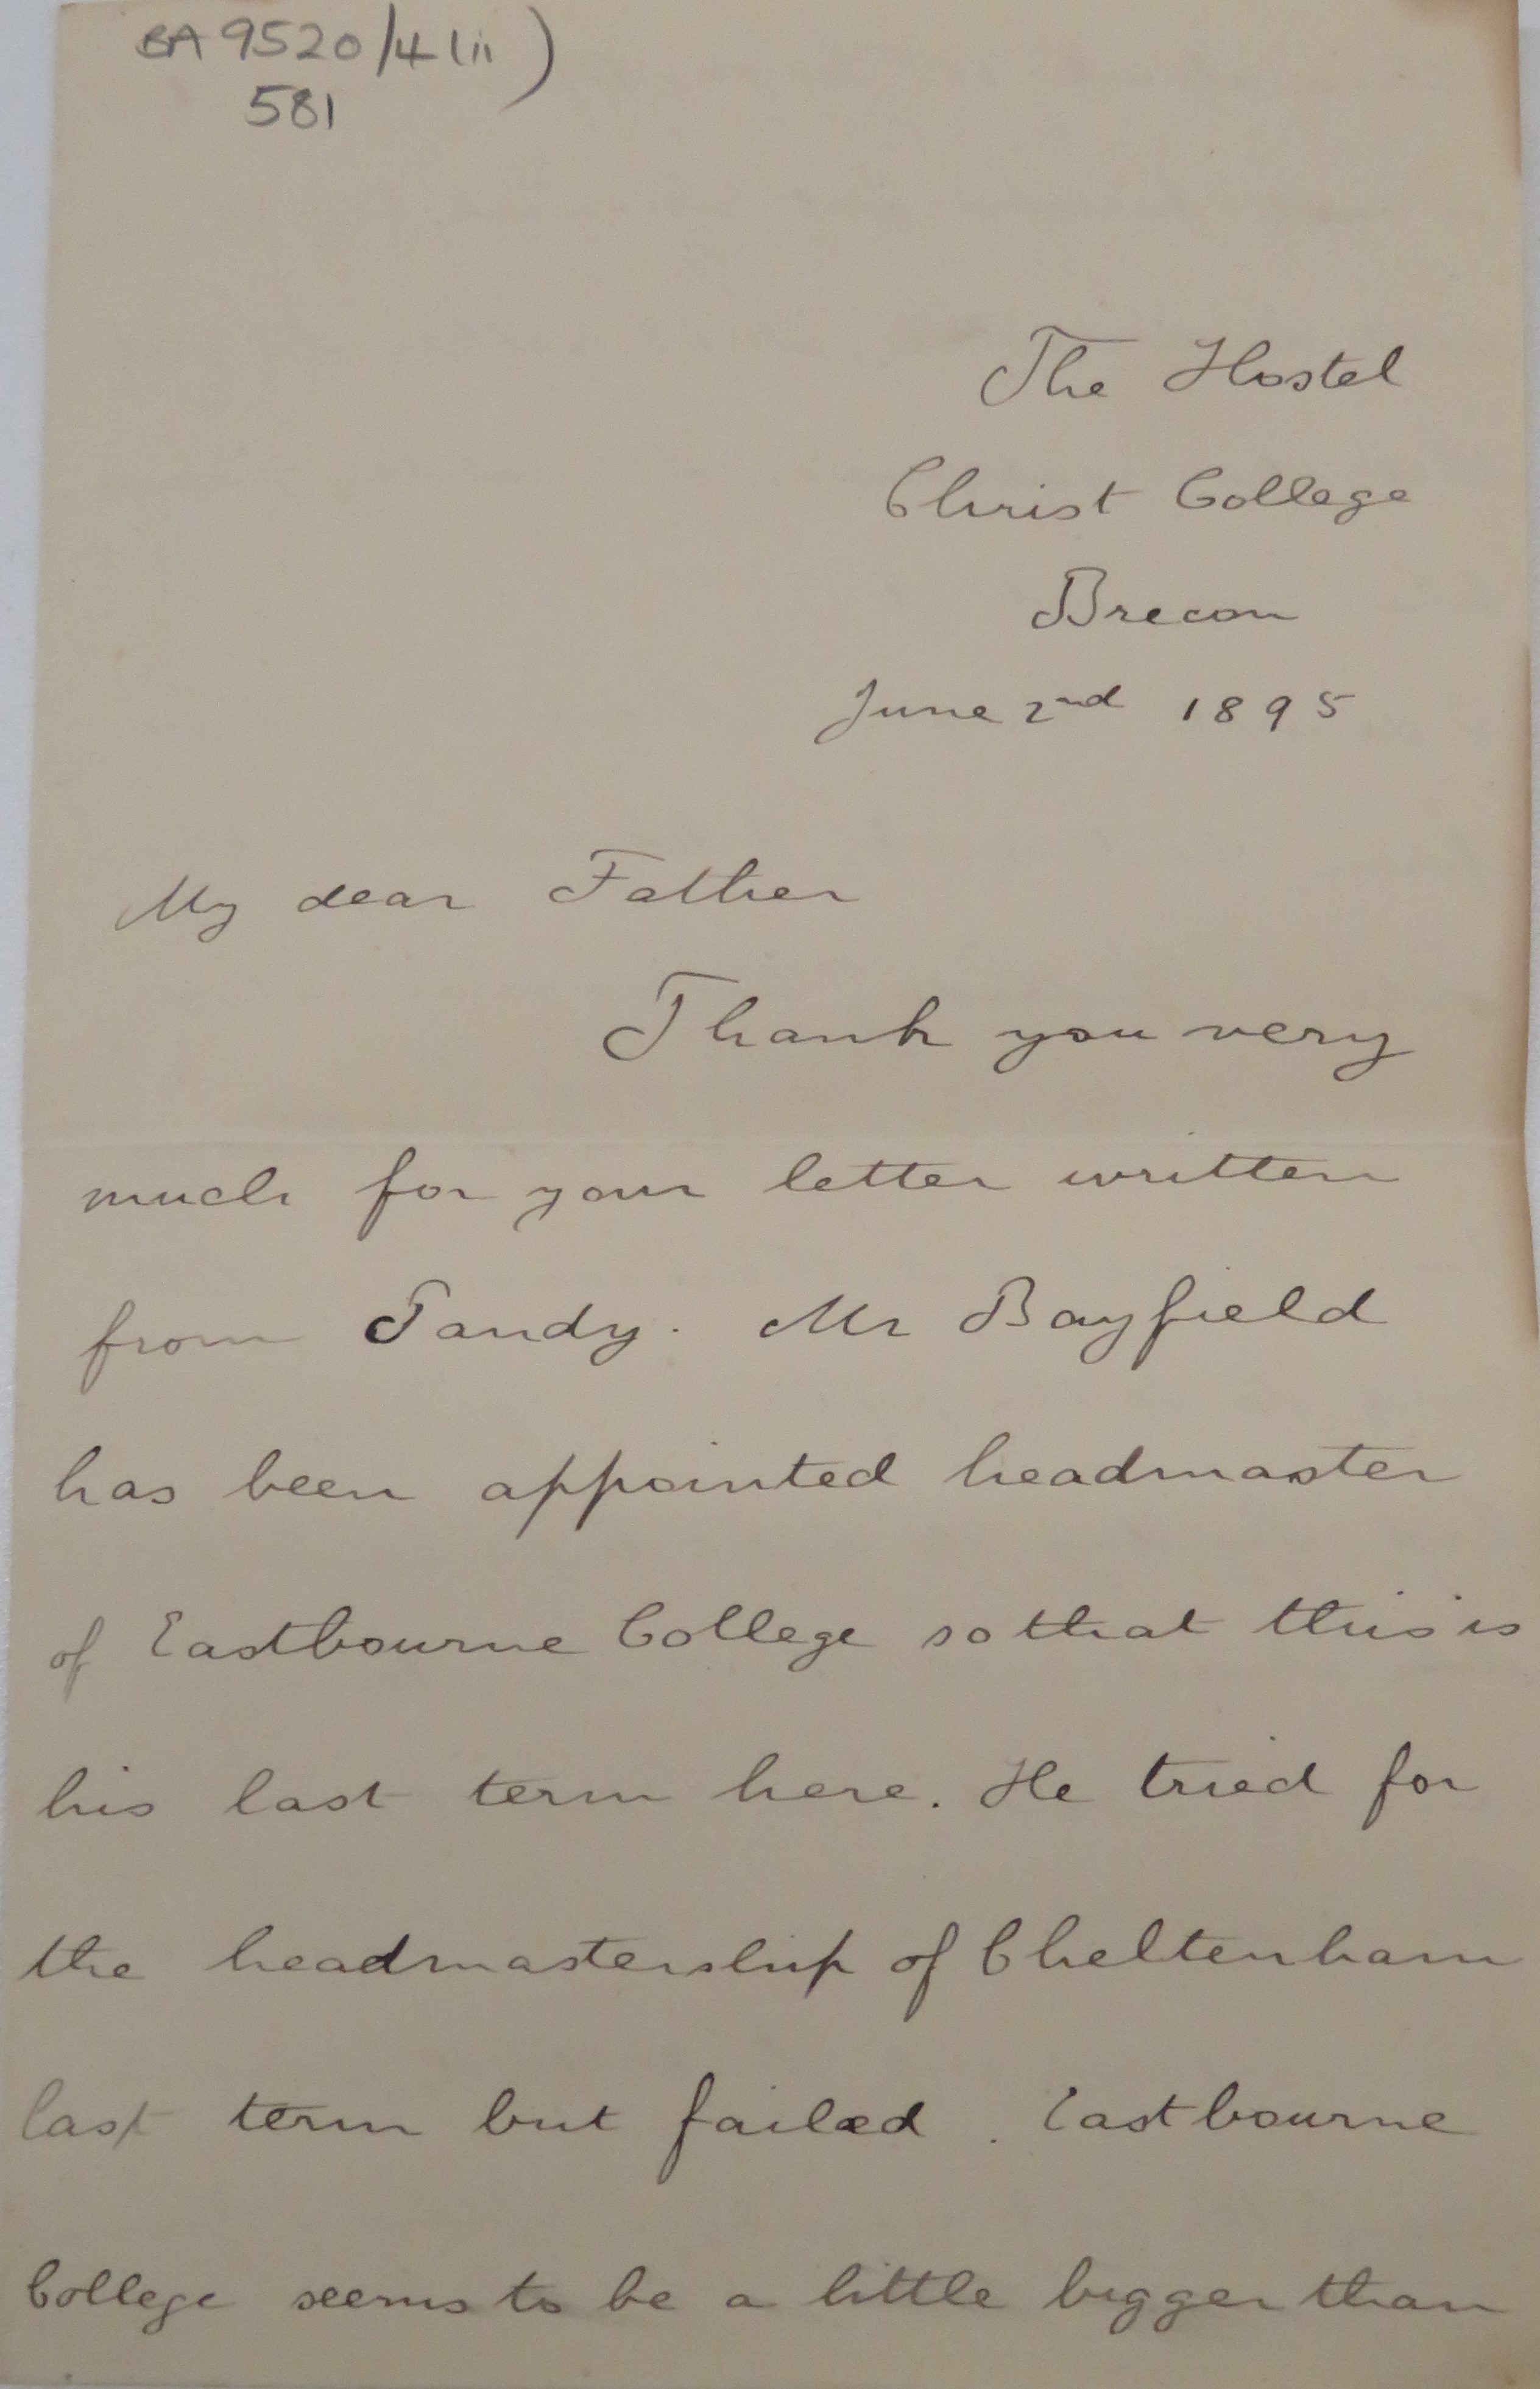 BA 9520/4(ii)
581
The Hostel
Christ College
Brecon
June 2nd 1895
My dear Father
Thank you very
much for your letter written
from Tandy. Mr Bayfield
has been appointed headmaster
of Eastbourne College so that this is
his last term here. He tried for
the headmastership of Cheltenham
last term but failed. Eastbourne
College seems to be a little bigger than